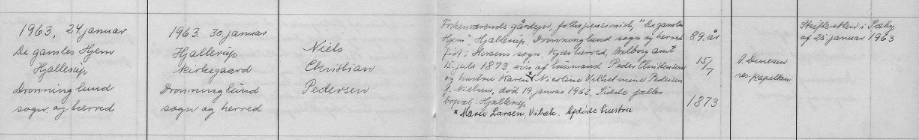 1963, 24 januar
De gamles Hjem
Hjallerup
Dronninglund
sogn og herred
1963 30 januar
Hjallerup
Kirkegaard
Dronninglund
sogn og herred
Niels
Christian
Pedersen
Forhenværende gårdejer, folkepensionist, "De gamles
Hjem" Hjallerup, Dronninglund sogn og herred
født i sogn, herred, amt
15 juli 1873 søn af husmand Peder Christensen
og hustru Karen Nicoline Vilhelmine Pedersen
f. Nielsen, død 19 januar 1962. Sidste fælles
bopæl: Hjallerup.
* Maren Larsen
89 år
15/7
1873
P. Danesen
res. kapellan
Skifteretten i Sæby
af 25 januar 1963